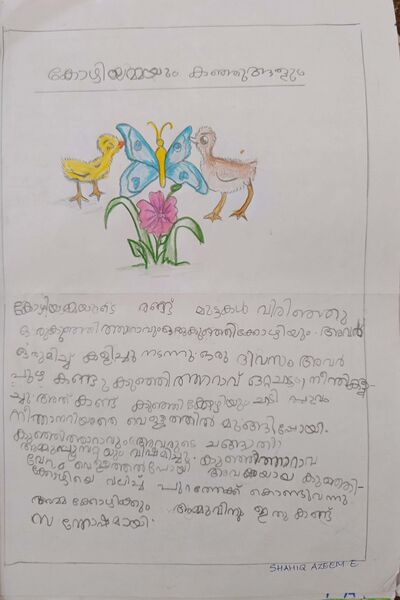 കോഴിയമ്മയും കുഞ്ഞുങ്ങളും
കോഴിയമ്മയുടെ രണ്ട് മുട്ടകൾ വിരിഞ്ഞു
ഒരു കുഞ്ഞിത്താറാവും ഒരു കുഞ്ഞിക്കോഴിയും. അവർ
ഒരുമിച്ച് കളിച്ചു നടന്നു. ഒരു ദിവസം അവർ
പുഴ കണ്ടു കുഞ്ഞിത്താറാവ് ഒറ്റചാട്ടം; നീന്തികളി
ച്ചു അത് കണ്ട് കുഞ്ഞിക്കോഴിയും ചാടി പാവം
നീന്താനറിയാതെ വെള്ളത്തിൽ മുങ്ങിപ്പോയി.
കുഞ്ഞിത്താറാവും അവരുടെ ചങ്ങാതി
അമ്മുപൂമ്പാറ്റയും വിഷമിച്ചു. കുഞ്ഞിത്താറാവ
വേഗം വെള്ളത്തിൽപോയി അവശയായ കുഞ്ഞി-
കോഴിയെ വലിച്ച് പുറത്തേക്ക് കൊണ്ടുവന്നു.
അമ്മ കോഴിക്കും അമ്മുവിനും ഇതു കണ്ട്
സന്തോഷമായി.
SHAHIQ AZEEM E